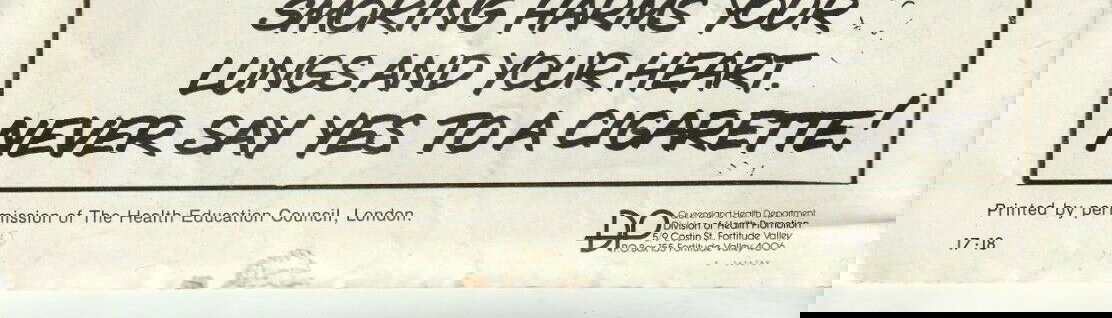 SMOKING HARMS YOUR
LUNGS AND YOUR HEART.
NEVER SAY YES TO A CIGARETTE!
mission of The Health Education Council, London
Queensland Health Department
Division of Health Promotion
5/9 Costin St. Fortitude Valley
P.O. Box 155 Fortitude Valley 4006
Printed by per
17·18